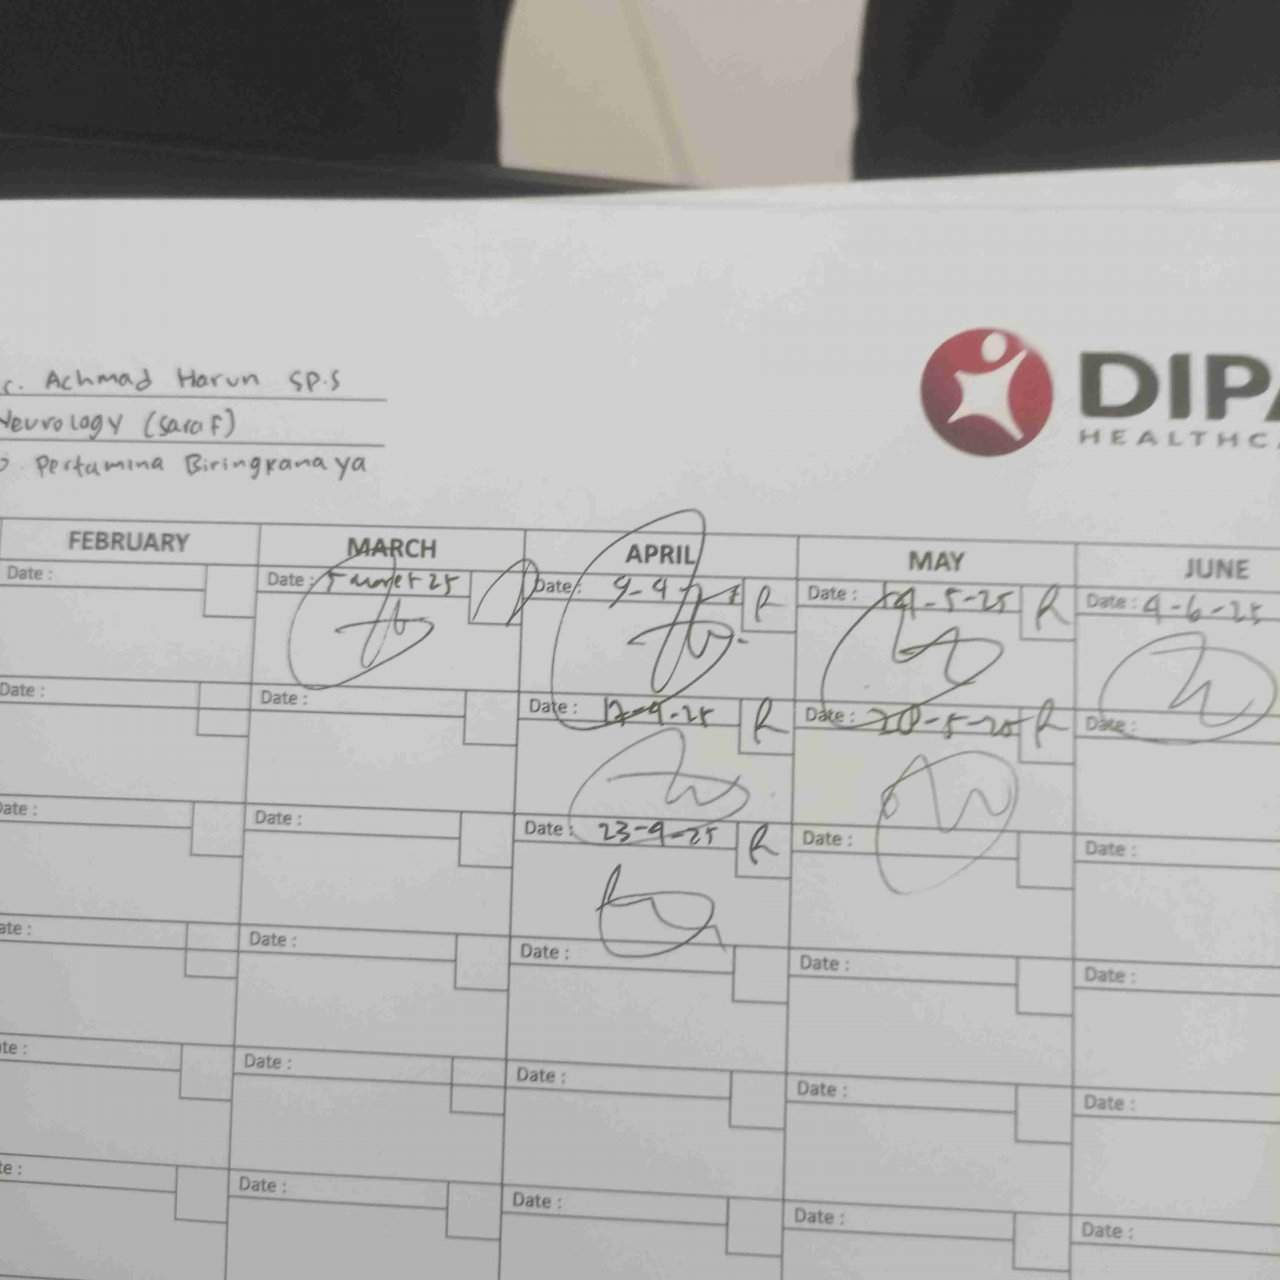 Achmad Harun SP.S
Neurology (saraf)
Pertamina Biringkanaya
DIPA
HEALTHCA
FEBRUARY MARCH APRIL MAY JUNE
Date : Date : 5 maret 25 Date : 9-4- R Date : 14-5-25 R Date : 4-6-25
Date : Date : Date : 17-4-25 R Date : 20-5-25 R Date :
Date : Date : Date : 23-4-25 R Date : Date :
ate : Date : Date : Date : Date :
te : Date : Date : Date : Date :
te : Date : Date : Date : Date :